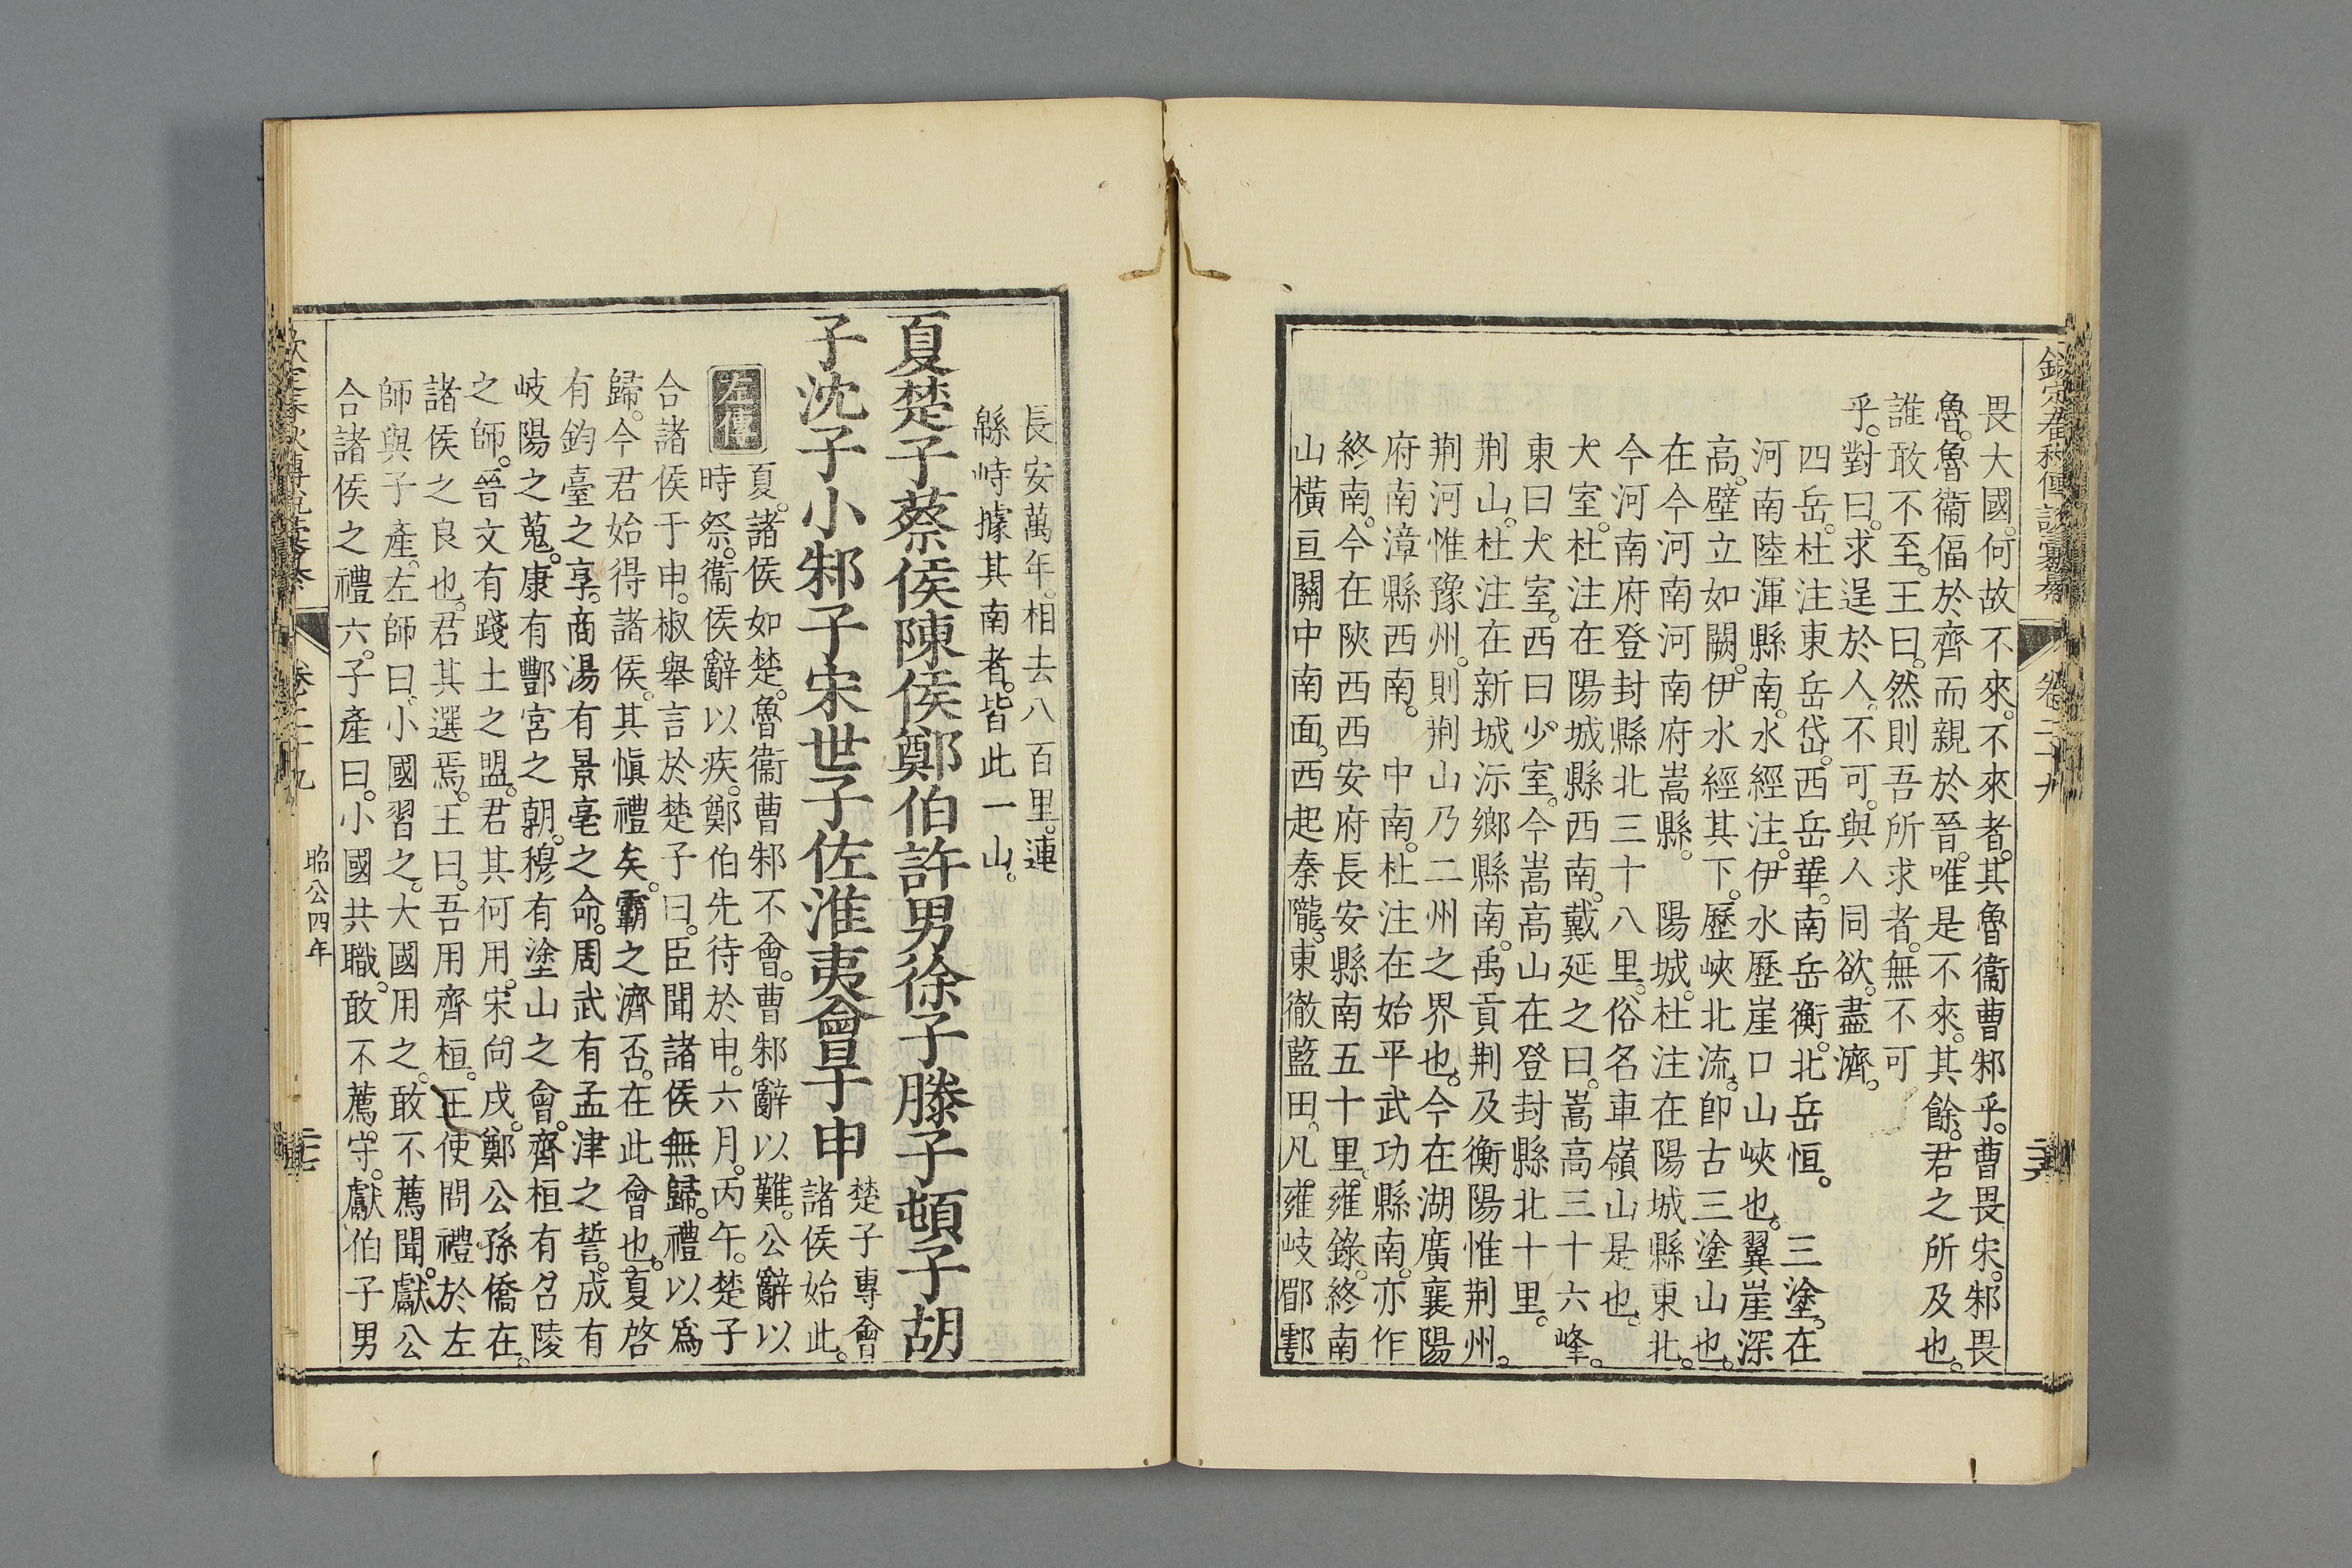 欽定春秋傳說彙纂 卷二十九 二十六
畏大國。何故不來。不來者。其魯衞曹邾乎。曹畏宋。邾畏
魯。魯衞偪於齊而親於晉。唯是不來。其餘。君之所及也。
誰敢不至。王曰。然則吾所求者。無不可
乎。對曰。求逞於人。不可。與人同欲。盡濟。
四岳。杜注東岳岱。西岳華。南岳衡。北岳恒。 三塗。在
河南陸渾縣南。水經注。伊水歷崖口山峽也。翼崖深
高。壁立如闕。伊水經其下。歷峽北流。卽古三塗山也。
在今河南河南府嵩縣。 陽城。杜注在陽城縣東北。
今河南府登封縣北三十八里。俗名車嶺山是也。
大室。杜注在陽城縣西南。戴延之曰。嵩高三十六峰。
東曰大室。西曰少室。今嵩高山在登封縣北十里。
荆山。杜注在新城沶鄉縣南。禹貢荆及衡陽惟荆州。
荆河惟豫州。則荆山乃二州之界也。今在湖廣襄陽
府南漳縣西南。 中南。杜注在始平武功縣南。亦作
終南。今在陝西西安府長安縣南五十里。雍錄。終南
山橫亘關中南面。西起秦隴。東徹藍田。凡雍岐郿鄠
長安萬年。相去八百里。連
緜峙據其南者。皆此一山。
夏楚子蔡侯陳侯鄭伯許男徐子滕子頓子胡
子沈子小邾子宋世子佐淮夷會于申 楚子專會
諸侯始此。
左傳 夏。諸侯如楚。魯衞曹邾不會。曹邾辭以難。公辭以
時祭。衞侯辭以疾。鄭伯先待於申。六月。丙午。楚子
合諸侯于申。椒舉言於楚子曰。臣聞諸侯無歸。禮以爲
歸。今君始得諸侯。其愼禮矣。霸之濟否。在此會也。夏啓
有鈞臺之享。商湯有景亳之命。周武有孟津之誓。成有
岐陽之蒐。康有酆宮之朝。穆有塗山之會。齊桓有召陵
之師。晉文有踐土之盟。君其何用。宋向戌。鄭公孫僑在。
諸侯之良也。君其選焉。王曰。吾用齊桓。王使問禮於左
師與子產。左師曰。小國習之。大國用之。敢不薦聞。獻公
合諸侯之禮六。子產曰。小國共職。敢不薦守。獻伯子男
欽定春秋傳說彙纂 卷二十九 昭公四年 二十七